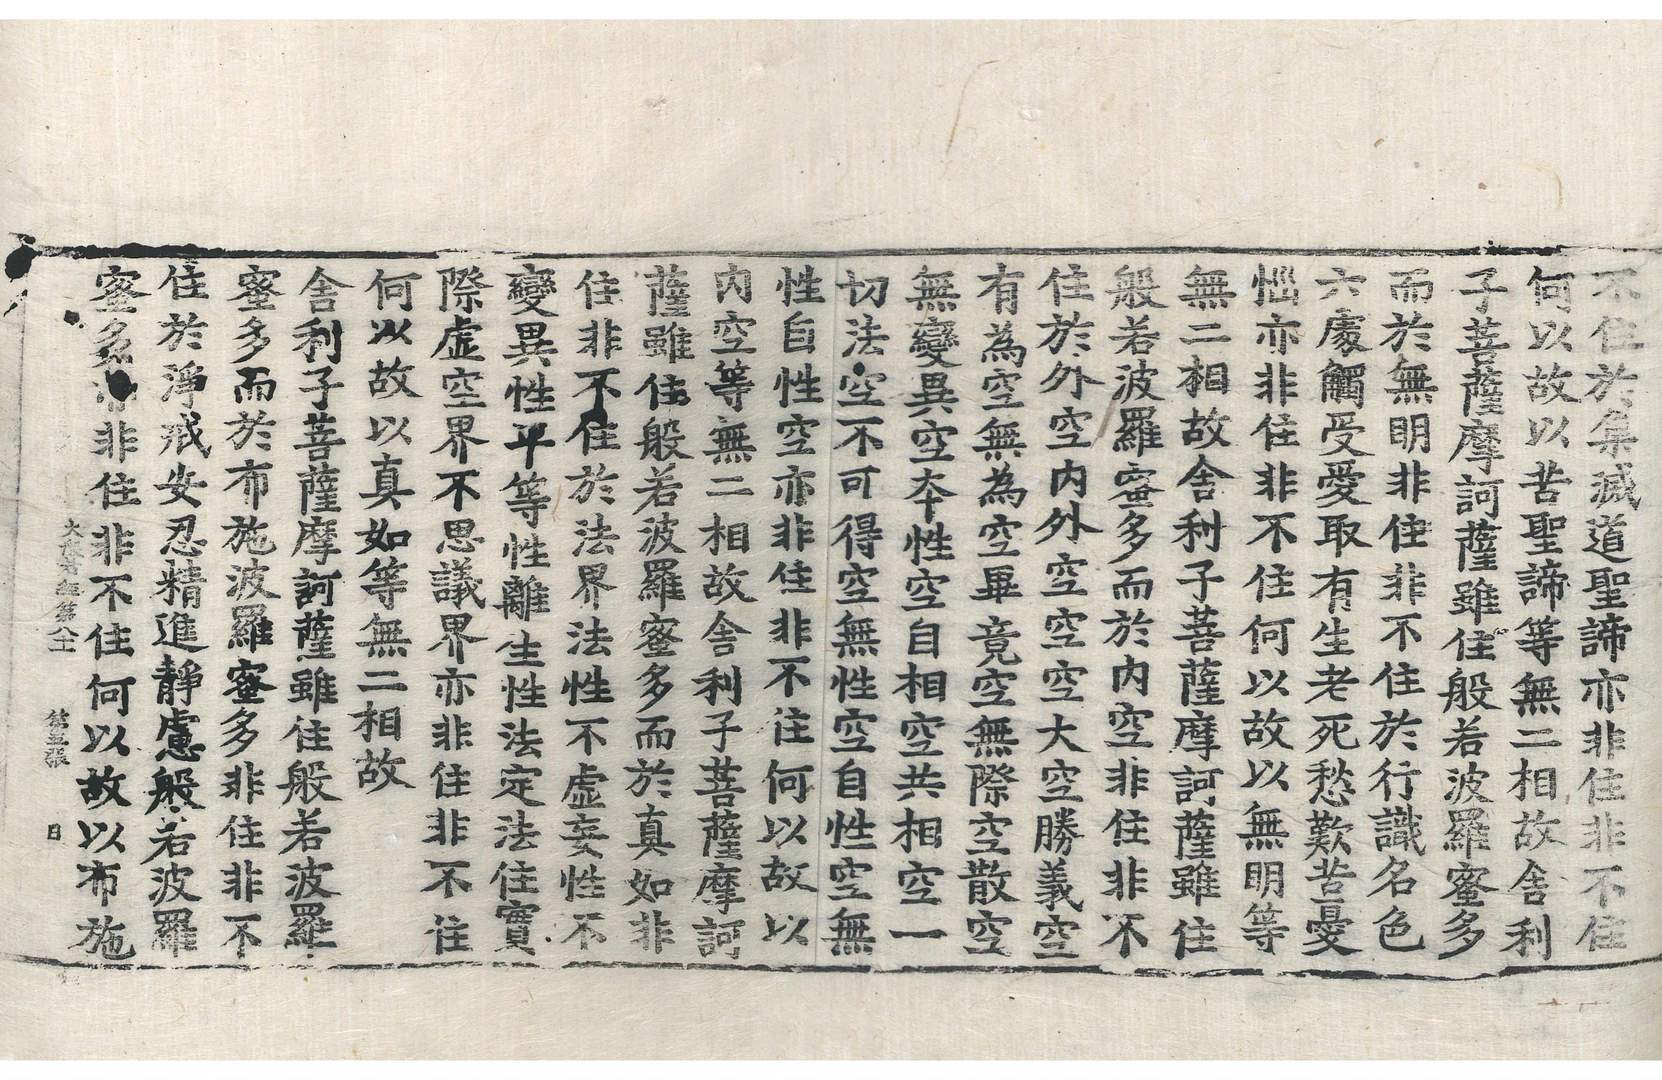 不住於集滅道聖諦亦非住非不住
何以故以苦聖諦等無二相故舎利
子菩薩摩訶薩雖住般若波羅蜜多
而於無明非住非不住於行識名色
六處觸受愛取有生老死愁歎苦憂
惱亦非住非不住何以故以無明等
無二相故舎利子菩薩摩訶薩雖住
般若波羅蜜多而於内空非住非不
住於外空内外空空空大空勝義空
有為空無為空畢竟空無際空散空
無變異空本性空自相空共相空一
切法空不可得空無性空自性空無
性自性空亦非住非不住何以故以
内空等無二相故舎利子菩薩摩訶
薩雖住般若波羅蜜多而於真如非
住非不住於法界法性不虛妄性不
變異性平等性離生性法定法住實
際虛空界不思議界亦非住非不住
何以故以真如等無二相故
舎利子菩薩摩訶薩雖住般若波羅
蜜多而於布施波羅蜜多非住非不
住於淨戒安忍精進靜慮般若波羅
蜜多亦非住非不住何以故以布施
第五張 日